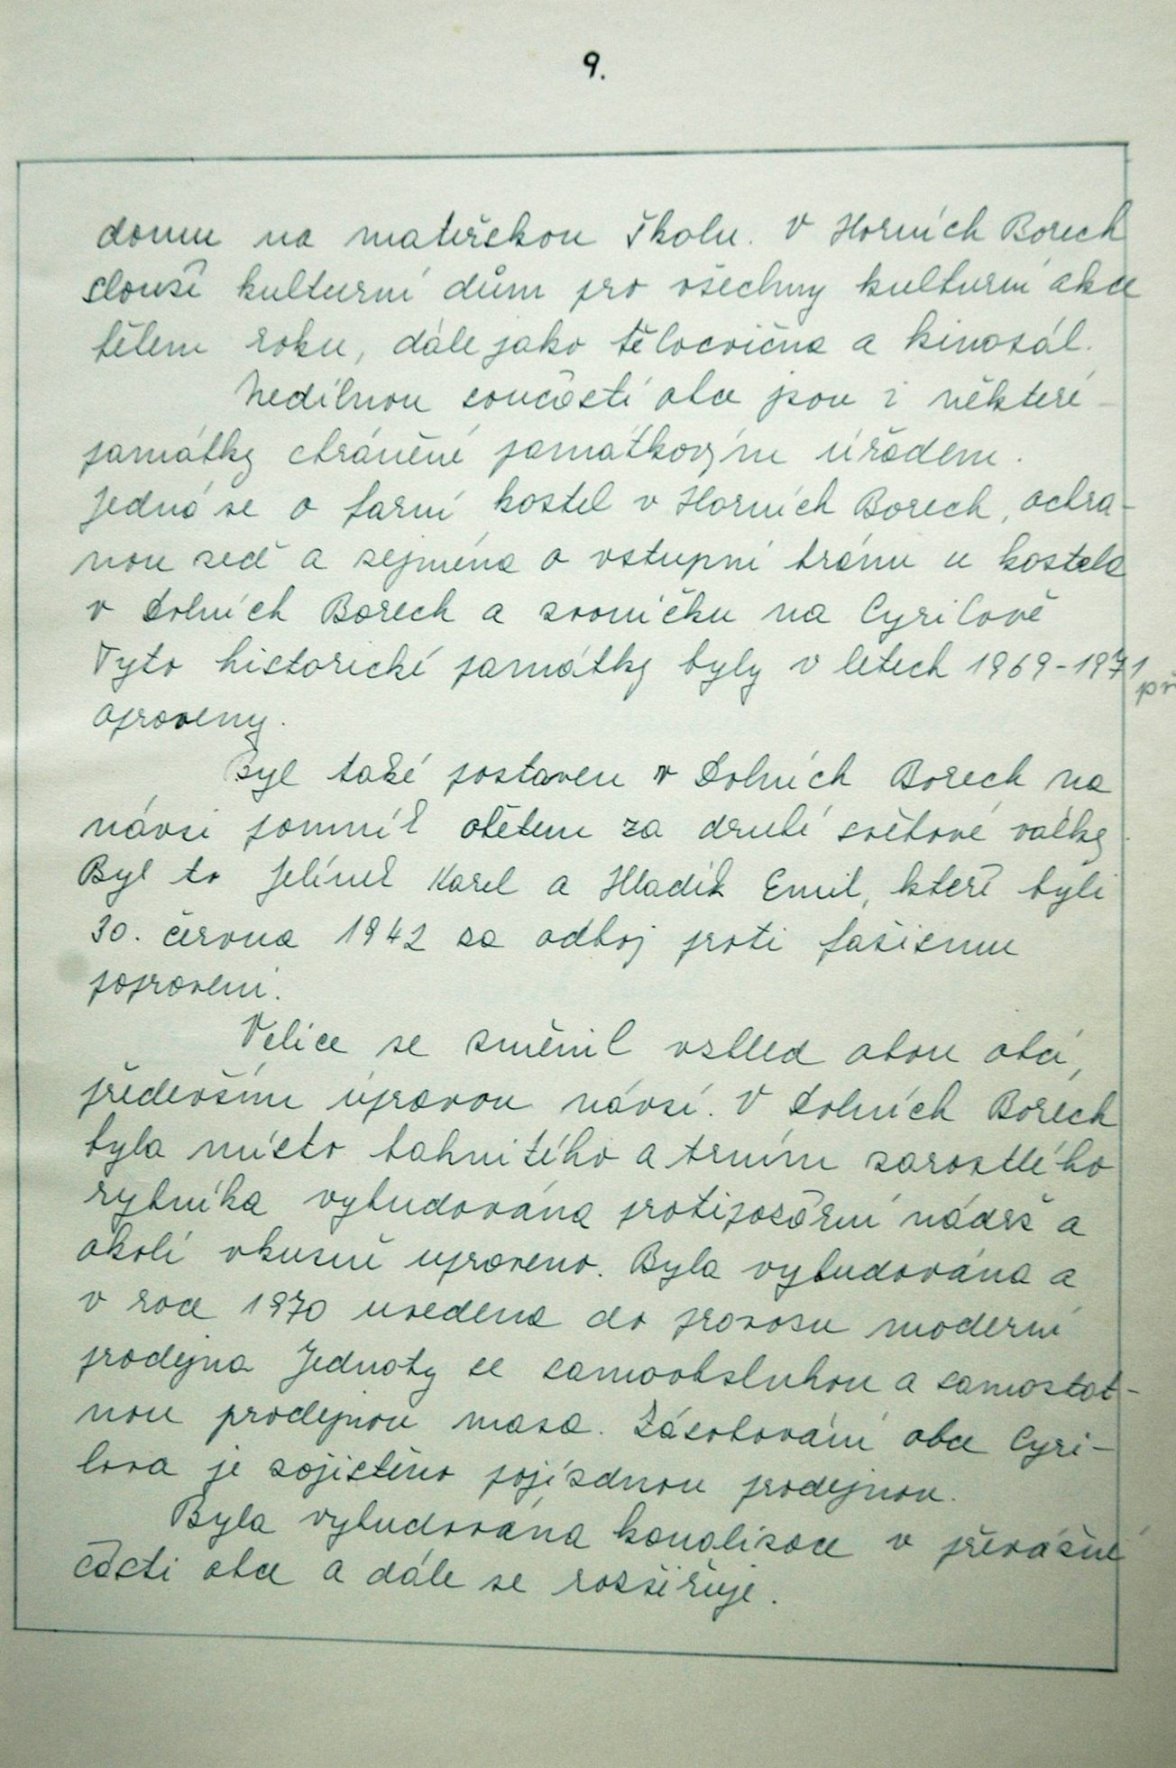 9.
domu na mateřskou školu. V Horních Borech
slouží kulturní dům pro všechny kulturní akce
během roku, dále jako tělocvična a kinosál.
Nedílnou součástí obce jsou i některé
památky chráněné památkovým úřadem.
Jedná se o farní kostel v Horních Borech, ochra-
nou zeď a zejména o vstupní bránu u kostela
v Dolních Borech a zvoničku na Cyrilově
Tyto historické památky byly v letech 1969-1971
opraveny.
Byl také postaven v Dolních Borech na
návsi pomník obětem za druhé světové války.
Byl to Jelínek Karel a Hladík Emil, kteří byli
30. června 1942 za odboj proti fašismu
popraveni.
Velice se změnil vzhled obou obcí,
především úpravou návsí. V Dolních Borech
byla místo bahnitého a trním zarostlého
rybníka vybudována protipožární nádrž a
okolí vkusně upraveno. Byla vybudována a
v roce 1970 uvedena do provozu moderní
prodejna Jednoty se samoobsluhou a samostat-
nou prodejnou masa. Zásobování obce Cyri-
lova je zajištěno pojízdnou prodejnou.
Byla vybudována kanalizace v převážné
části obce a dále se rozšiřuje.